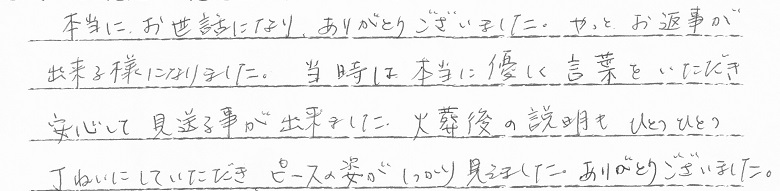 本当に、お世話になり、ありがとうございました。やっと お返事が
出来る様になりました。 当時は 本当に 優しく 言葉を いただき
安心して 見送る事が 出来ました。火葬後の説明も ひとつひとつ
丁ねいにしていただき ピースの姿が しっかり 見えました。ありがとうございました。